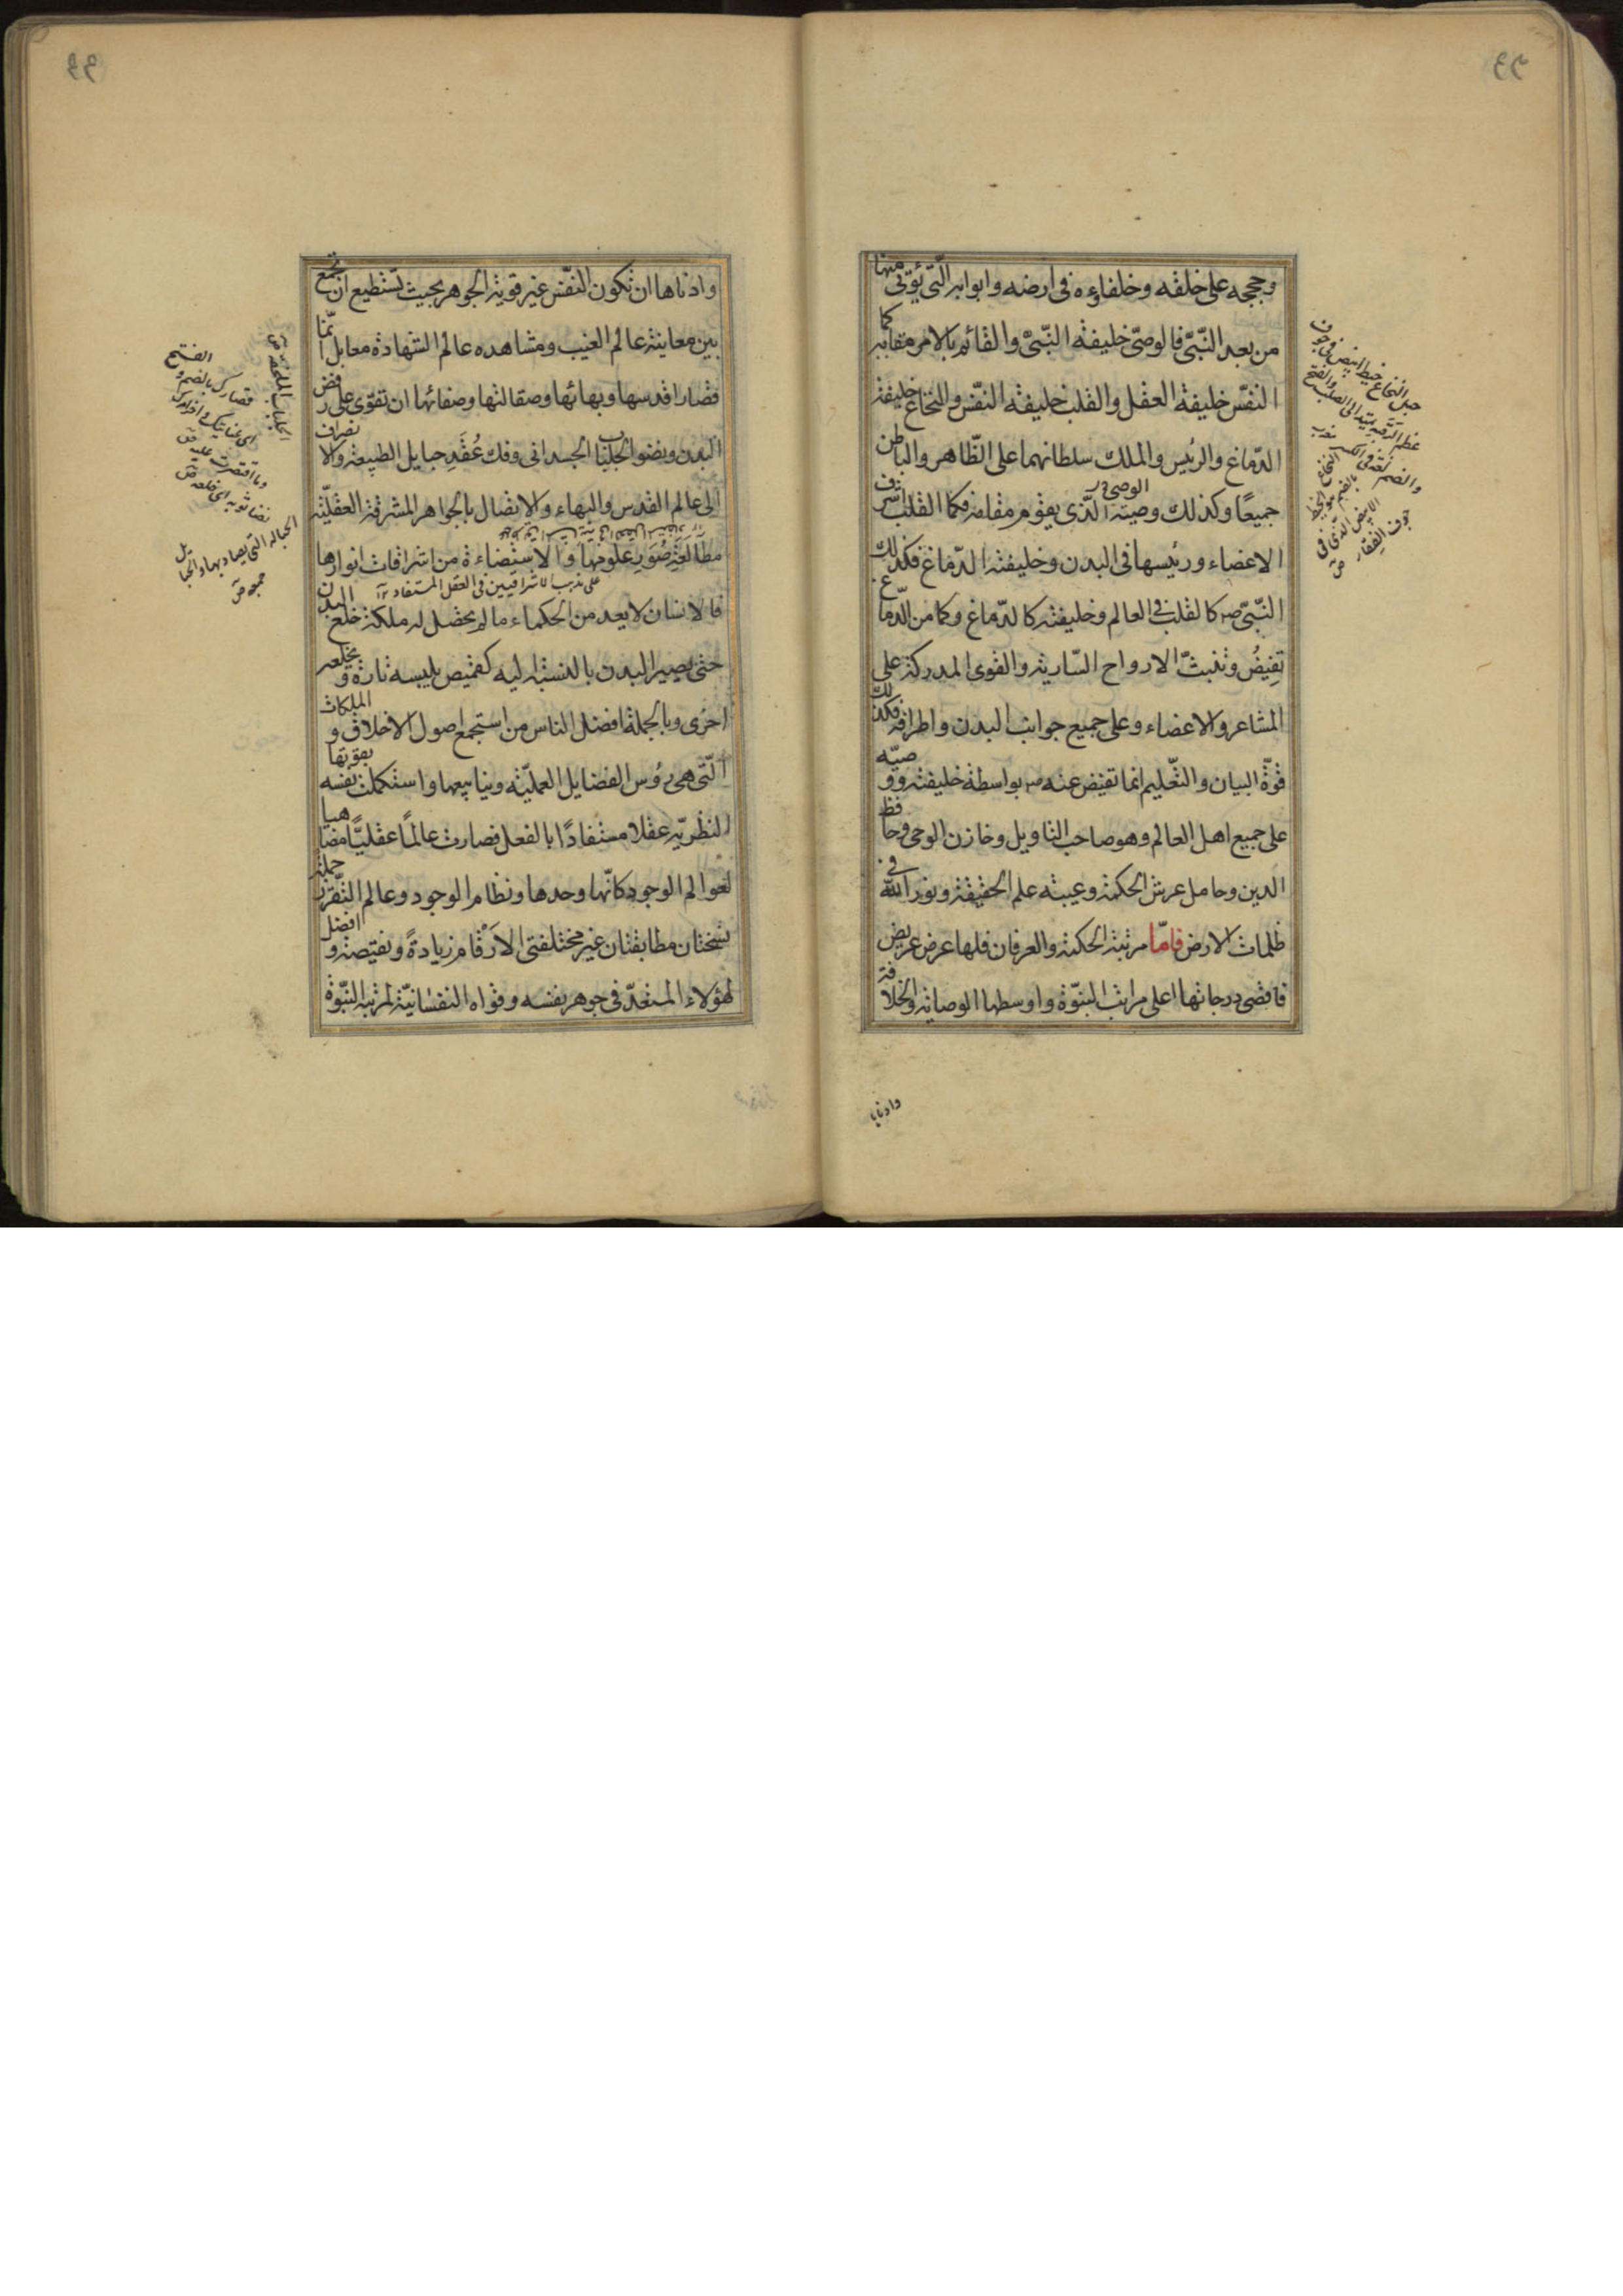 وحججه على خلقه وخلفاؤه فى ارضه وابوابه الّتى يؤتى منها
من بعد النّبىّ فالوصىّ خليفة النّبىّ والقائم بالامر مقامه كما
النفس خليفة العقل والقلب خليفة النفس والنخاع خليفة
الدّماغ والرئيس والملك سلطانهما على الظّاهر والباطن
جميعًا وكذلك وصيّه الّذى يقوم مقامه فكما القلب اشرف
الاعضاء ورئيسها فى البدن وخليفته الدّماغ فكذلك
النّبىّ ص كالقلب فى العالم وخليفته كالدّماغ وكما من الدّماغ
تفيضُ وتنبثّ الارواح السّارية والقوى المدركة على
المشاعر والاعضاء وعلى جميع جوانب البدن واطرافه فكذلك
قوّة البيان والتّعليم انما تفيض عنه ص بواسطة خليفته ووصيّه
على جميع اهل العالم وهو صاحب التاويل وخازن الوحى وحافظ
الدين وحامل عرش الحكمة وعيبة علم الحقيقة ونور الله فى
ظلمات الارض فامّا مرتبة الحكمة والعرفان فلها عرض عريض
فاقصى درجاتها اعلى مراتب النبّوة واوسطها الوصاية والخلافة
وادناها
حبل النخاع خيط ابيض فى جوف
عظم الرقبة يمتد الى الصلب والفتح
والضم لغة فى الكسر مغرب
النخاع بالضم هو الخيط
الابيض الذى فى
جوف الفقار ص
وادناها ان تكون النفس غير قوية الجوهر بحيث تستطيع ان تجمع
بين معاينة عالم الغيب ومشاهده عالم الشهادة معا بل انّما
قصارا قدسها وبهائها وصقالتها وصفائها ان تقوّى على رفض
البدن ونضو الجلباب الجسدانى وفك عُقَدِ حبايل الطبيعة والانصراف
الى عالم القدس والبهاء والاتصال بالجواهر المشرقة العقليّة
مطالعَةِ صُوَرِ علومها والاستضاءة من اشراقات انوارها
على مذهب الاشراقيين فى العقل المستفاد ١٢
فالانسان لا يعد من الحكماء ما لم يحصل له ملكة خلع البدن
حتى يصير البدن بالنسبة اليه كقميص يلبسه تارة ويخلعه
اخرى وبالجملة افضل الناس من استجمع اصول الاخلاق والملكات
الّتى هى رؤس الفضايل العمليّة وينابيعها واستكملت نفسه بقوتها
النظريّه عقلا مستفادًا بالفعل فصارت عالمًا عقليًّا مضاهيا
لعوالم الوجود كانّها وحدها ونظام الوجود وعالم التّقرّر جملة
نسختان مطابقتان غير مختلفتى الارْقام زيادةً ونقيصة وافضل
هٰؤلاء المستعدّ فى جوهر نفسه وقواه النفسانيّة لمرتبة النبّوة
الجلباب الملحفة ق
قصارك بالضم والفتح
اى غايتك واخر امرك
وما اقتصرت عليه ق
نضا ثوبه اى خلعه ق
الحبالة التى يصاد بها والحبايل
جمع ص